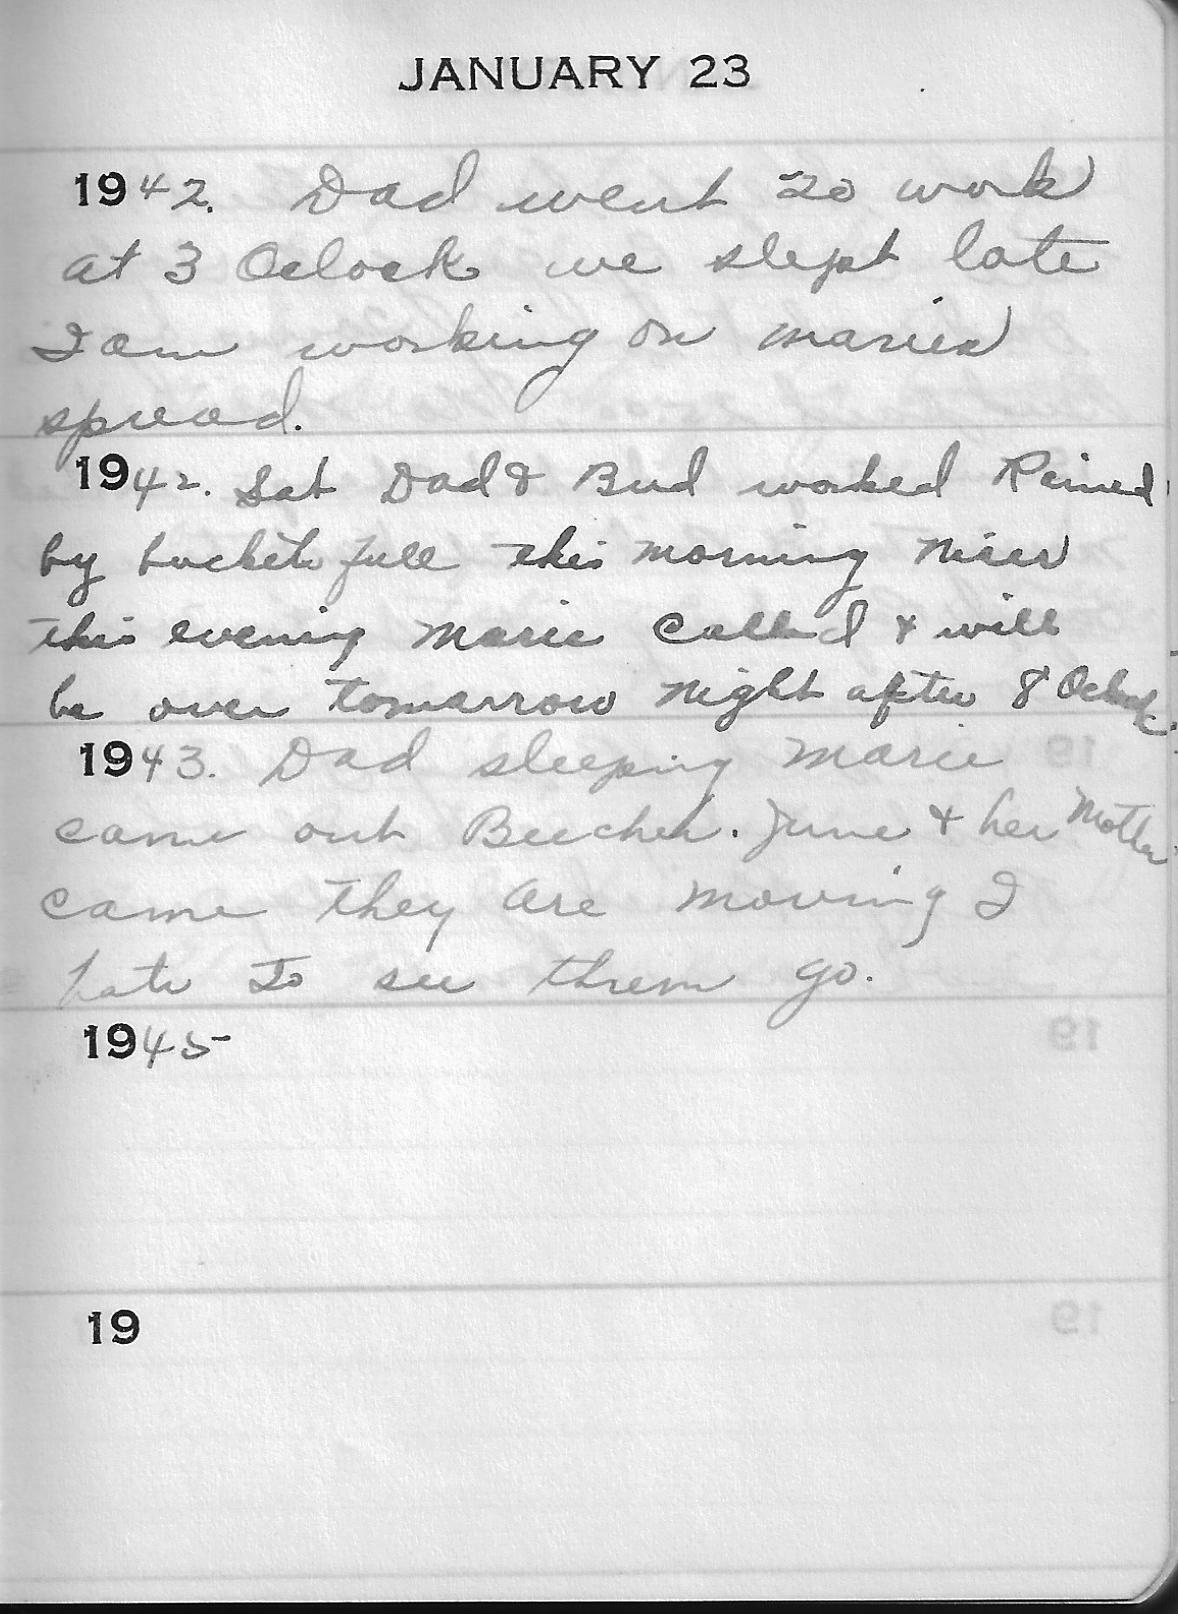 JANUARY 23
1942. Dad went to work
at 3 Oclock we slept late
I am working on maries
spread.
1942. Sat Dad & Bud worked Rained
by buckets full this morning nicer
this evening marie called & will
be over tomarrow night after 8 Oclock
1943. Dad sleeping marie
came out Beecher. June & her Mother
came they are moving I
hate to see them go.
1945
19